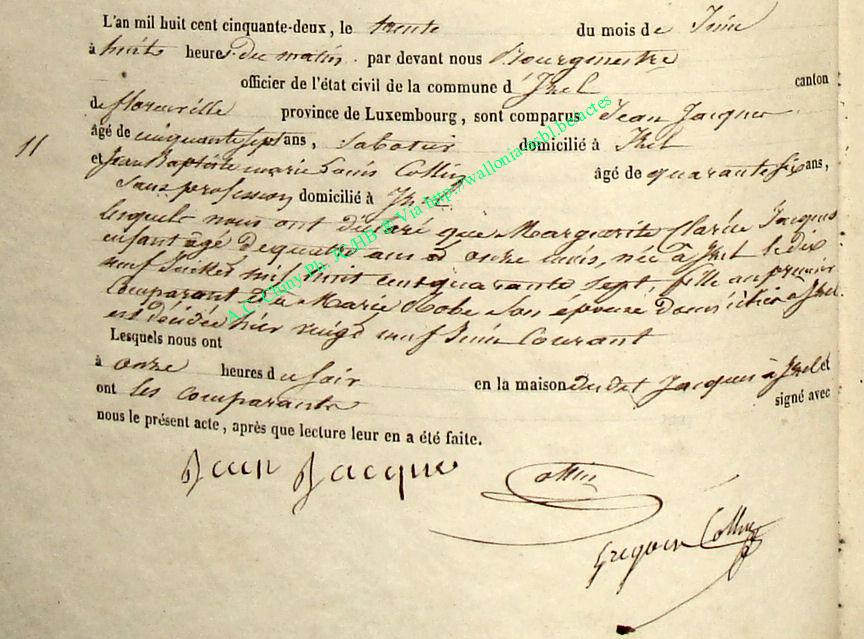 L'an mil huit cent cinquante-deux, le trente du mois de Juin
à huit heures du matin par devant nous Bourgmestre
officier de l'état civil de la commune d'Izel canton
de florenville province de Luxembourg, sont comparus Jean Jacques
âgé de cinquante sept ans, sabotier domicilié à Izel
11
et Jean Baptiste marie Louis Collin âgé de quarante six ans,
sans profession domicilié à Izel
lesquels nous ont déclaré que Marguerite Jacques
enfant âgé de quatre ans et onze mois, née à Izel le dix
neuf Juillet mil huit cent quarante sept, fille au premier
Comparant et à Marie Robe son épouse domiciliée à Izel
est décédée hier vingt neuf Juin Courant
Lesquels nous ont
à onze heures du soir en la maison dudit Jacques à Izel et
ont les comparants signé avec
nous le présent acte, après que lecture leur en a été faite.
Jean Jacque
Collin
Gregoire Collin
A.C. Chiny Ph. JCHB & Via http://wallonia.mbl.be/actes